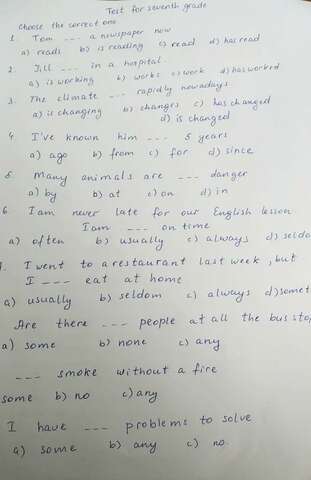 Test for seventh grade
Choose the correct one
1. Tom --- a newspaper now
a) reads b) is reading c) read d) has read
2. Jill --- in a hospital.
a) is working b) works c) work d) has worked
3. The climate --- rapidly nowadays
a) is changing b) changes c) has changed
d) is changed
4 I've known him --- 5 years
a) ago b) from c) for d) since
5. Many animals are --- danger
a) by b) at c) on d) in
6. I am never late for our English lesson
I am --- on time
a) often b) usually c) always d) seldo
I went to a restaurant last week, but
I --- eat at home
a) usually b) seldom c) always d) somet
Are there --- people at all the bus stop
a) some b) none c) any
--- smoke without a fire
some b) no c) any
I have --- problems to solve
a) some b) any c) no.